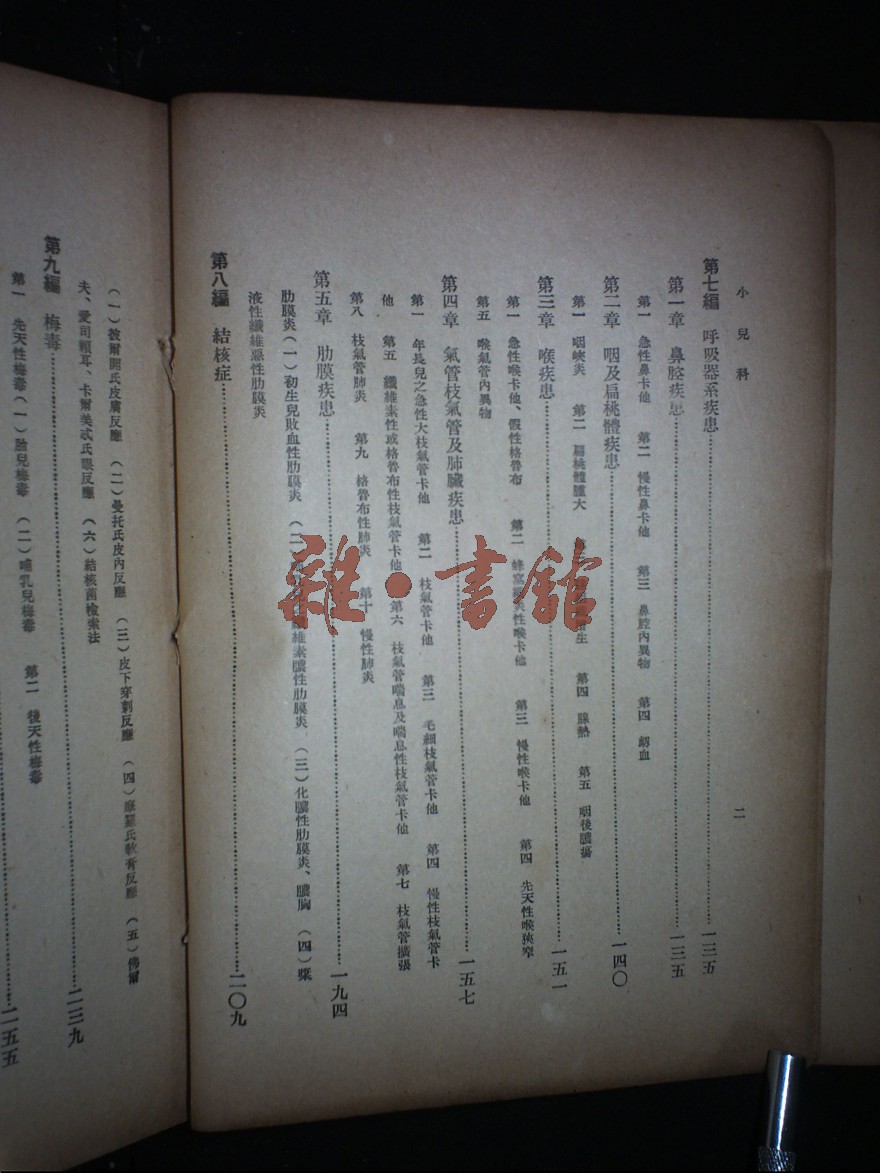 小兒科
二
第七編 呼吸器系疾患……一三五
第一章 鼻腔疾患……一三五
第一 急性鼻卡他 第二 慢性鼻卡他 第三 鼻腔內異物 第四 衂血
第二章 咽及扁桃體疾患……一四〇
第一 咽峽炎 第二 扁桃體腫大 生 第四 腺熱 第五 咽後膿瘍
第三章 喉疾患……一五一
第一 急性喉卡他、假性格魯布 第二 炎性喉卡他 第三 慢性喉卡他 第四 先天性喉狹窄
第五 喉氣管內異物
第四章 氣管枝氣管及肺臟疾患……一五七
第一 年長兒之急性大枝氣管卡他 第二 枝氣管卡他 第三 毛細枝氣管卡他 第四 慢性枝氣管卡
他 第五 纖維素性或格魯布性枝氣管卡他 第六 枝氣管喘息及喘息性枝氣管卡他 第七 枝氣管擴張
第八 枝氣管肺炎 第九 格魯布性肺炎 第十 慢性肺炎
第五章 肋膜疾患……一九四
肋膜炎(一)初生兒敗血性肋膜炎 (二) 維素膿性肋膜炎 (三)化膿性肋膜炎、膿胸 (四)漿
液性纖維惡性肋膜炎
第八編 結核症……二〇九
(一)彼爾開氏皮膚反應 (二)曼托氏皮內反應 (三)皮下穿刺反應 (四)摩羅氏軟膏反應 (五)傅爾
夫、愛司賴耳、卡爾美忒氏眼反應 (六)結核菌檢索法
第九編 梅毒……二三九
第一 先天性梅毒(一)胎兒梅毒 (二)哺乳兒梅毒 第二 後天性梅毒
二五五
雜·書館